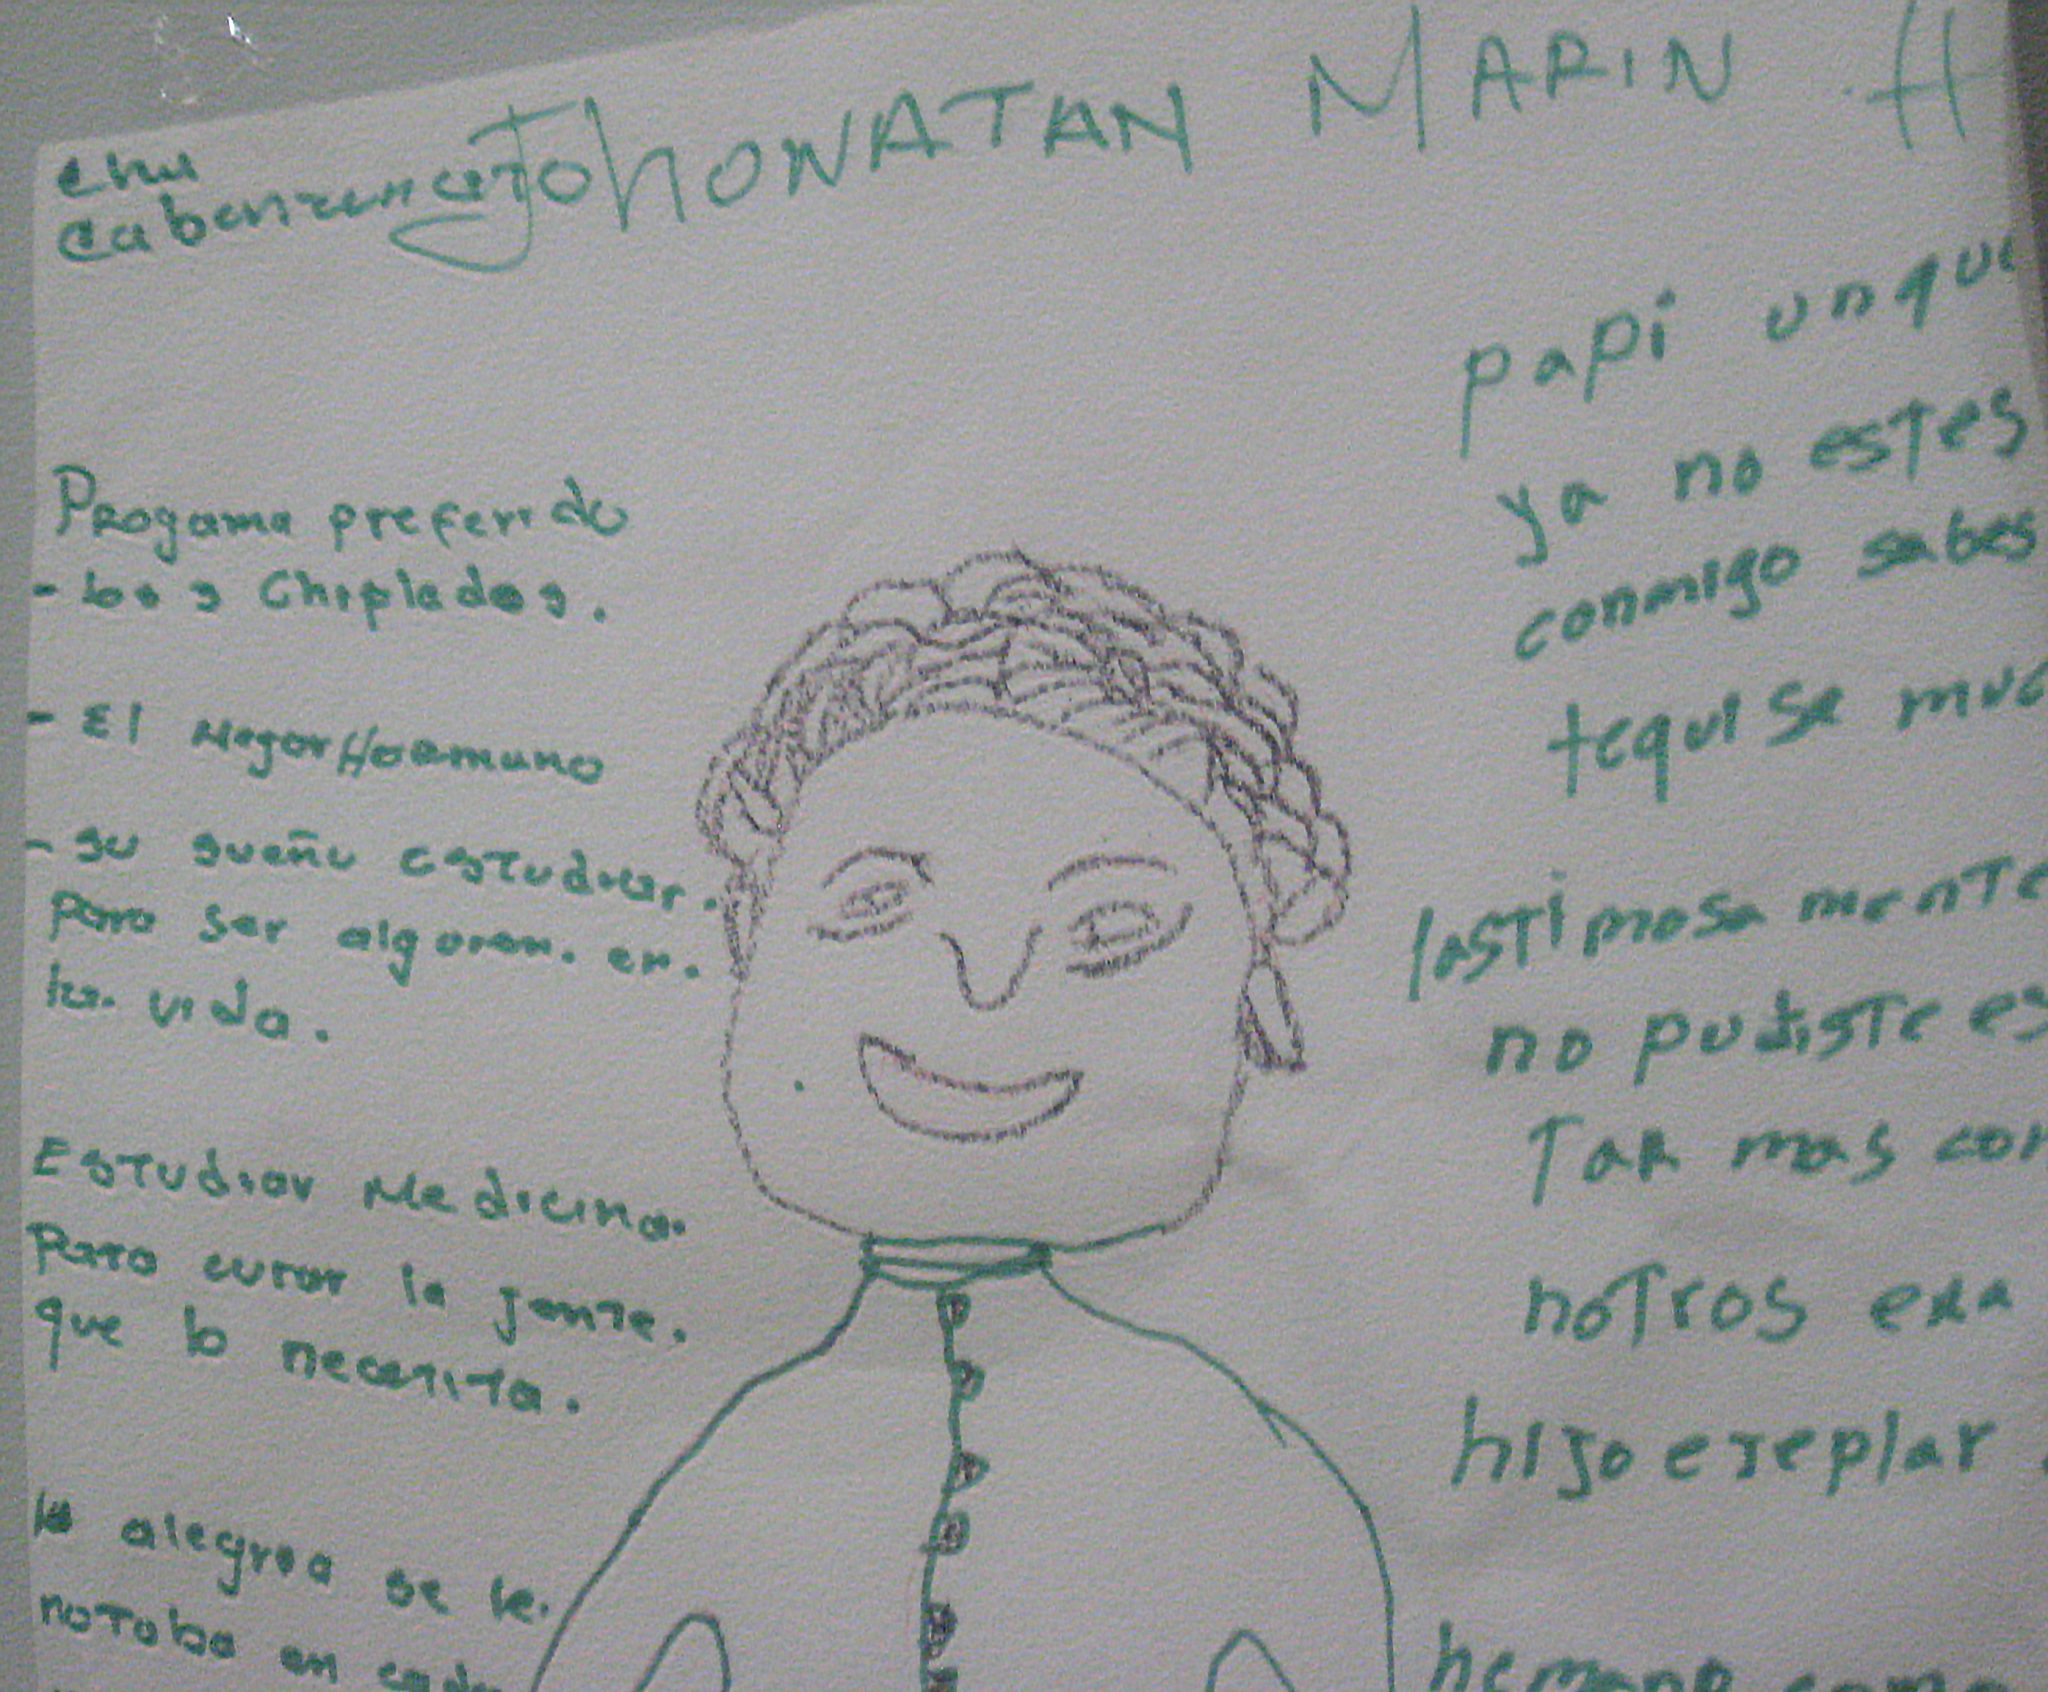 Jhonatan Marin H
Progama preferido
- los 3 Chiplados.
- El Megor Hoermano
- su sueño estudiar.
para ser algoren. en.
la. vida.
Estudiar Medicina.
Para curar la jente.
que lo necesita.
la alegrea se le.
notaba en cada
papi unque
ya no estes
conmigo sabes
tequise muc
lastimosa mente
no pudiste es
Tar mas con
notros era
hijo ejeplar
hemano como